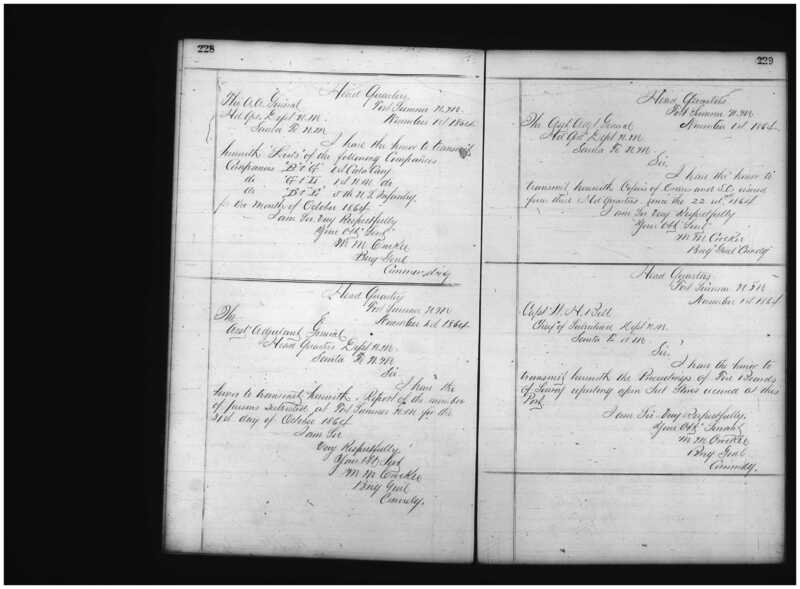 228
Head Quarters
Fort Sumner N.M.
November 1st 1864
The A.A. General
Hd Qrs Dept N.M.
Santa Fe N.M
I have the honor to transmit
herewith of the following Companies
Companies "B & G" 1st Cala Cavy
do 1st N.M. do
do 5th U.S. Infantry
for the Month of October 1864
I am Sir Very Respectfully
Your Obt Servt
M. M. Crocker
Brig Genl
Commandg
Head Quarters
Fort Sumner N.M
November 1st 1864
The
Asst Adjutant General
Head Quarters Dept N.M.
Santa Fe N.M
Sir
I have the
honor to transmit herewith Report of the number
of persons at Fort Sumner N.M. for the
31st day of October 1864
I am Sir
Very Respectfully
Your Obt Servt
M M Crocker
Brig Genl
Commdg.
229
Head Quarters
Fort Sumner N.M
November 1st 1864
The Asst Adjt General
Hd Qrs Dept N.M
Santa Fe N.M
Sir
I have the honor to
transmit herewith Copies of Orders and S.O. issued
from these Hd Quarters since the 22 1864
I am Sir Very Respectfully
Your Obt Servt
M. M. Crocker
Brig Genl Comdg
Head Quarters
Fort Sumner N.M
November 1st 1864
Capt W. H. Bell
Chief of Subsistence Dept N.M.
Santa Fe N M.
Sir.
I have the honor to
transmit herewith the Proceedings of Five Boards
of Survey reporting upon Sub Stores received at this
Post
I am Sir Very Respectfully.
Your Obt Servant
M. M Crocker
Brig Genl
Commdg.